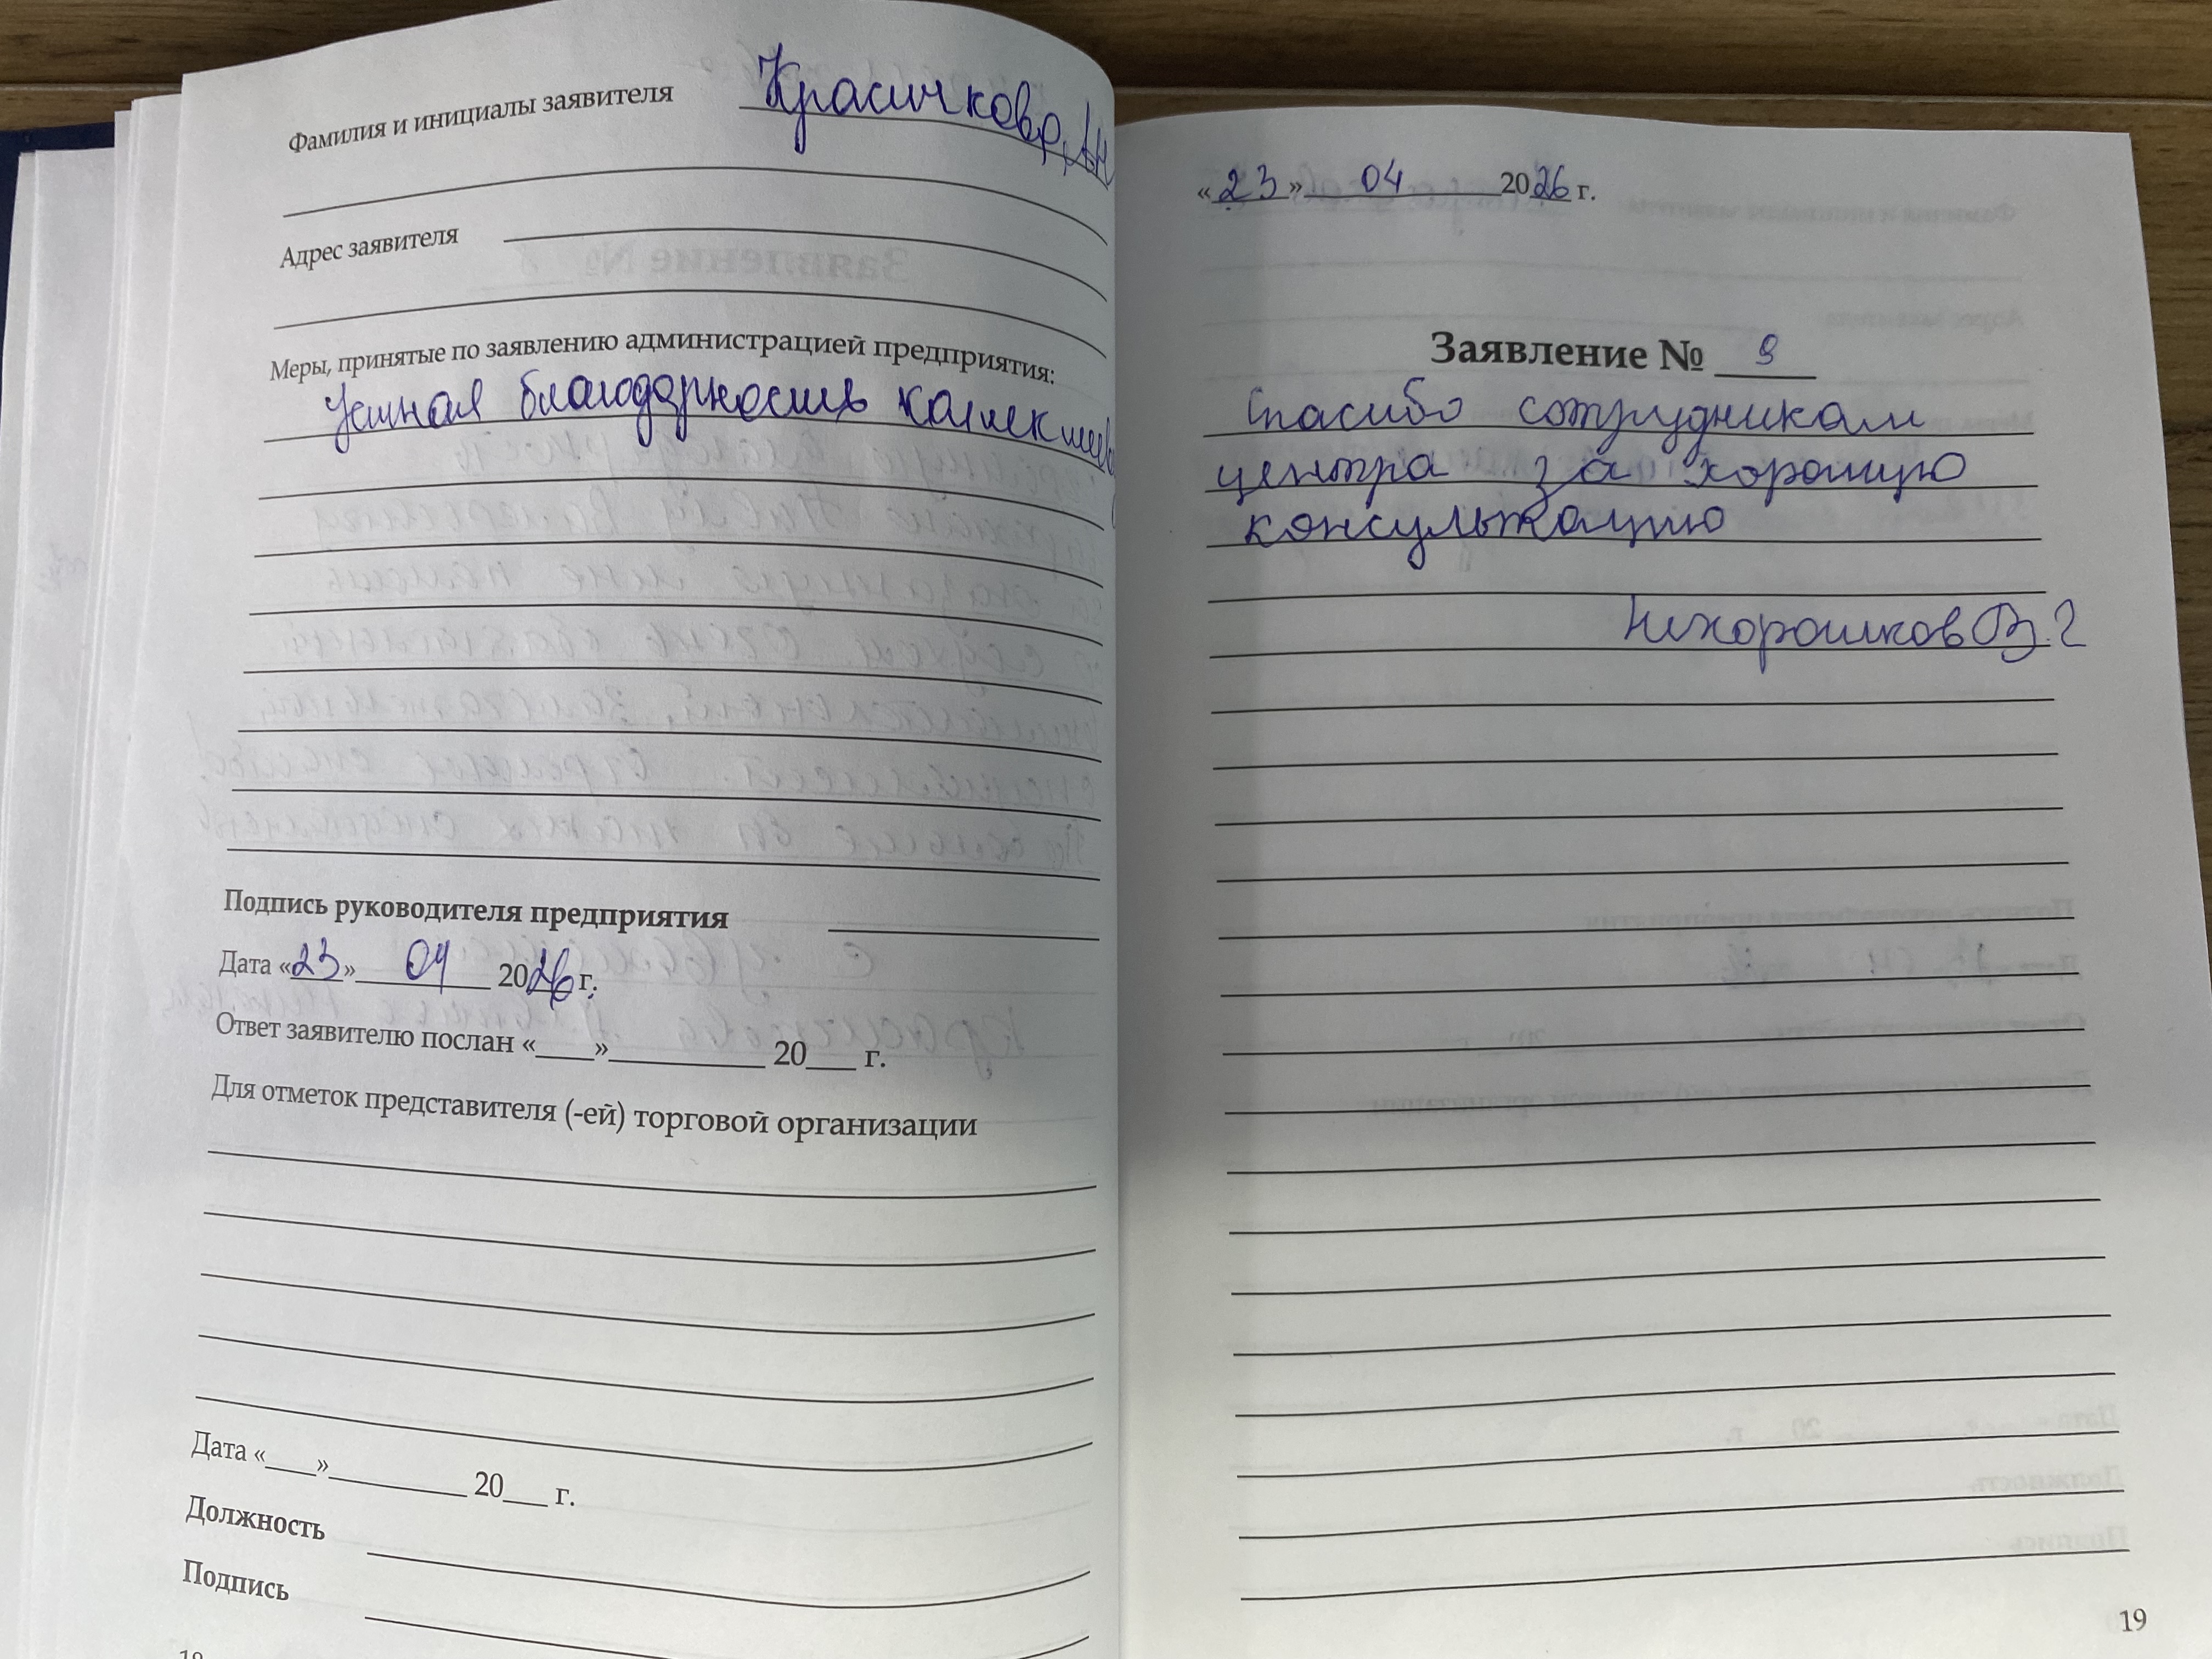 Фамилия и инициалы заявителя Красичкова
Адрес заявителя
Меры, принятые по заявлению администрацией предприятия:
Устная благодарность
Подпись руководителя предприятия
Дата «23» 04 2026 г.
Ответ заявителю послан «____»__________ 20___ г.
Для отметок представителя (-ей) торговой организации
Дата «____»__________ 20___ г.
Должность
Подпись
18
«23» 04 2026 г.
Заявление № 9
Спасибо сотрудникам
центра за хорошую
консультацию
Нехорошков В.Г
19